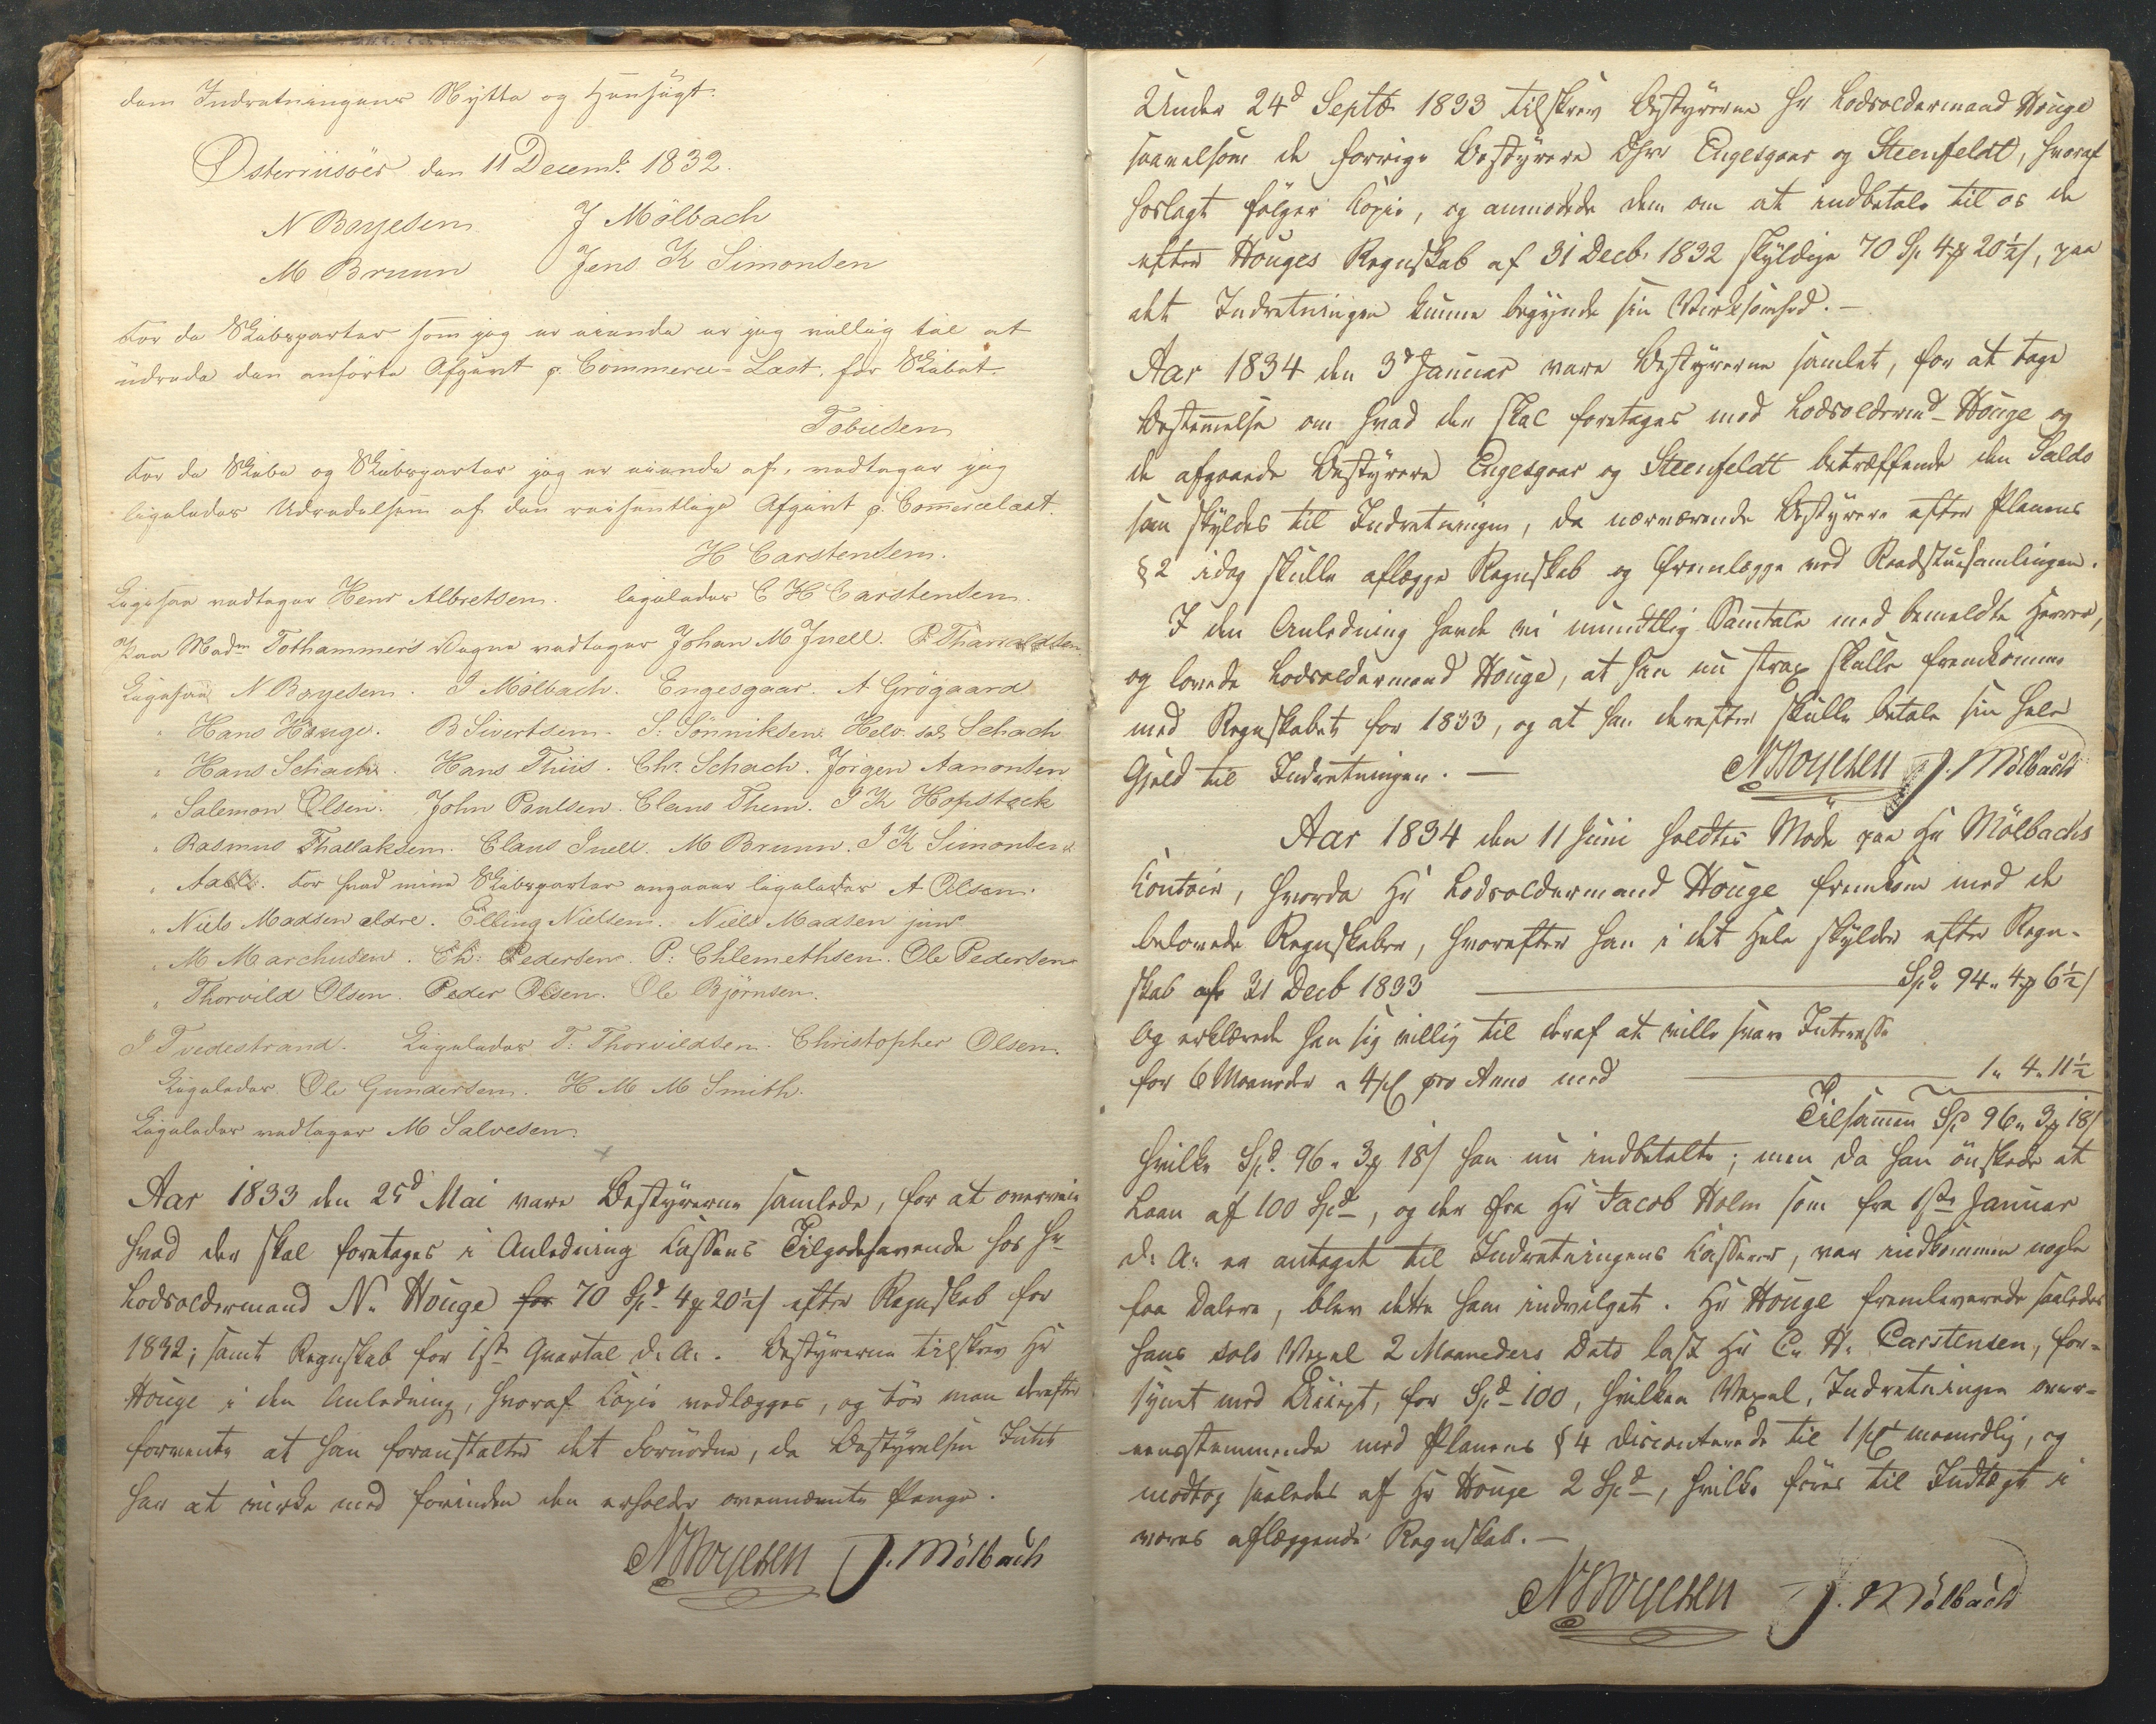 dens Indretningens Nytte og Hensigt.
Østerriisöer den 11 Decembr 1832.
N Boyesen J Mölbach
M Bruun Jens K Simonsen
For de Skibsparter som jeg er eiende er jeg villig til at
udrede den anförte Afgivt p. Commerce-Læst, for Skibet
Tobiesen
For de Skibe og Skibsparter jeg er eiende af, vedtager jeg
ligeledes Udredelsen af den væsentlige Afgivt p. Commercelæst.
H Carstensen.
Ligesaa vedtager Henr Albretsen. ligeledes C H Carstensen.
Paa Madm Tothammer's Vegne vedtager Johan M Juell. P. Tharaldsen
Ligesaa N Boyesen. J Mölbach. Engesgaar. A Grögaard
" Hans Houge. B Sivertsen. S: Sönniksen. Helv. sal Schach
" Hans Schach. Hans Thiis. Chr. Schach. Jörgen Aanonsen
" Salemon Olsen. John Poulsen. Claus Them. J K Hopstock
" Rasmus Thallaksen. Claus Juell. M Bruun. J K Simonsen
" Aall. For hvad mine Skibsparter angaaer ligeledes A Olsen.
" Niels Madsen eldre. Elling Nielsen. Niels Madsen jun
" M Marchusen. Ch: Pedersen. P: Chlemethsen. Ole Pedersen
" Thorvild Olsen. Peder Olsen. Ole Björnsen.
J Tvedestrand. Ligeledes T: Thorvildsen. Christopher Olsen.
Ligeledes Ole Gundersen. H M M Smith.
Ligeledes vedtager M Salvesen.
Aar 1833 den 25d Mai vare Bestyrerne samlede, for at overveie
hvad der skal foretages i Anledning Cassens Tilgodehavende hos Hr
Lodsoldermand N. Houge for 70 Spd 4 20½ s efter Regnskab for
1832; samt Regnskab for 1ste Quartal d. A. Bestyrerne tilskrev Hr
Houge i den Anledning, hvoraf Copie vedlægges, og bör man derefter
forvente at han foranstalter det Fornödne, da Bestyrelsen Intet
har at virke med forinden den erholder ovennævnte Penge.
N Boyesen J. Mölbach
Under 24d Septb 1833 tilskrev Bestyrerne Hr Lodsoldermand Houge
saavelsom de forrige Bestyrere DHrr Engesgaar og Steenfeldt, hvoraf
hoslagt fölger Copie, og anmodede dem om at indbetale til os de
efter Houges Regnskab af 31 Decb. 1832 skyldige 70 Sp 4 20½ s, paa
det Indretningen kunne begynde sin Virksomhed. —
Aar 1834 den 3d Januar vare Bestyrerne samlet, for at tage
Bestemmelse om hvad der skal foretages med Lodsoldermd Houge og
de afgaaede Bestyrere Engesgaar og Steenfeldt betræffende den Saldo
som skyldes til Indretningen, da nærværende Bestyrere efter Planens
§ 2 idag skulle aflægge Regnskab og fremlægge ved Raadstuesamlingen.
I den Anledning havde vi mundtlig Samtale med bemeldte Herrer,
og lovede Lodsoldermand Houge, at han nu strax skulle fremkomme
med Regnskabet for 1833, og at han derefter skulle betale sin hele
Gjeld til Indretningen. — N Boyesen J. Mölbach
Aar 1834 den 11 Juni holdtes Möde paa Hr Mölbachs
Contoir, hvorda Hr Lodsoldermand Houge fremkom med de
belovede Regnskaber, hvorefter han i det Hele skylder efter Regn-
skab af 31 Decb 1833 — Spd 94 " 4 6½ s
Og erklærede han sig villig til deraf at ville svare Interesse
for 6 Maaneder a 4 pC pro Anno med — 1 " 4 " 11½
Tilsammen Sp 96 " 3 18 s
hvilke Spd. 96 " 3 18 s han nu indbetalte; men da han önskede at
Laan af 100 Spd, og der fra Hr Jacob Holm som fra 1ste Januar
d: A: er antaget til Indretningens Casserer, var indkommen nogle
faa Dalere, blev dette ham indvilget. Hr Houge fremleverede saaledes
hans solo Vexel 2 Maaneders Dato last Hr C. H. Carstensen, for-
synet med Accept, for Spd 100, hvilken Vexel, Indretningen over-
eensstemmende med Planens § 4 discouterede til 1 pCt maanedlig, og
modtog saaledes af Hr Houge 2 Spd, hvilke föres til Indtægt i
vores aflæggende Regnskab. —
N Boyesen J. Mölbach